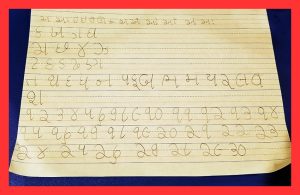 અ આ ઇ ઈ ઉ ઊ એ ઐ ઓ ઔ અં અઃ
ક ખ ગ ઘ
ચ છ જ ઝ
ટ ઠ ડ ઢ ણ
ત થ દ ધ ન પ ફ બ ભ મ ય ર લ વ
શ
૧ ૨ ૩ ૪ ૫ ૬ ૭ ૮ ૯ ૧૦ ૧૧ ૧૨ ૧૩ ૧૪
૧૫ ૧૬ ૧૭ ૧૮ ૧૯ ૨૦ ૨૧ ૨૨ ૨૩
૨૪ ૨૫ ૨૬ ૨૭ ૨૮ ૨૯ ૩૦